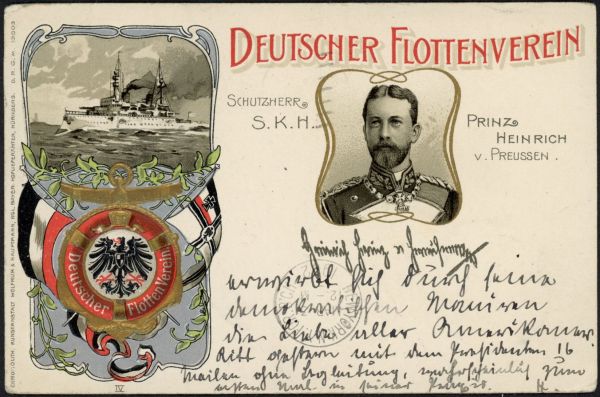 DEUTSCHER FLOTTENVEREIN
SCHUTZHERR
S.K.H.
PRINZ
HEINRICH
V. PREUSSEN.
Deutscher Flotten Verein
IV
Heinrich Prinz v Preussen
erwirbt sich durch seine
demokratischen Manieren
die Liebe aller Amerikaner.
Ritt gestern mit dem Presidenten 16
Meilen ohne Begleitung, wahrscheinlich zum
ersten Mal in seiner